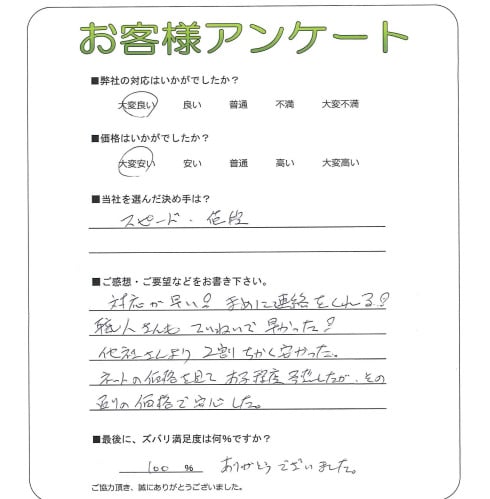 お客様アンケート
■弊社の対応はいかがでしたか?
大変良い 良い 普通 不満 大変不満
■価格はいかがでしたか?
大変安い 安い 普通 高い 大変高い
■当社を選んだ決め手は?
スピード・値段
■ご感想・ご要望などをお書き下さい。
対応が早い!手めに連絡をくれる!
職人さんもていねいで早かった!
他社さんより2割ちかく安かった。
ネットの価格を見てある程度予想したが、その
通りの価格で安心した。
■最後に、ズバリ満足度は何%ですか?
100 % ありがとうございました。
ご協力頂き、誠にありがとうございました。